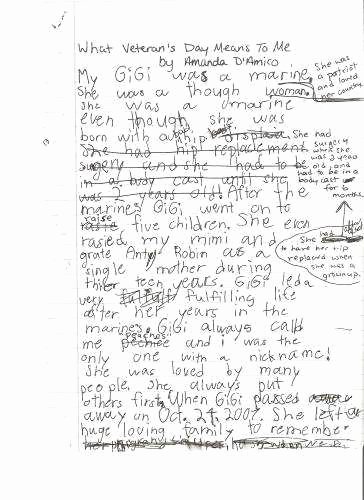 What Veteran's Day Means To Me
by Amanda D'Amico
My GiGi was a marine.
She was a though woman.
She was a patriot
and loved
her country
she was a marine
even though she was
born with a hip
She had
She had hip replacement
surgery
when she
was 2 years
old, and
had to be in a
body cast
for 6
months
surgery and she had to be
in a body cast until she
was 2 years old. After the
marines GiGi went on to
raise five children. She even
rasied my mimi and
grate Anty Robin as a
She had
to have her hip
replaced when
she was a
grownup.
single mother during
thier teen years. GiGi leda
very fulfilling life
after her years in the
marines. GiGi always call
me peaches and i was the
only one with a nickname!
She was loved by many
people. She always put
others first. When GiGi passed
away on Oct. 24, 2007. She left a
huge loving family to remember